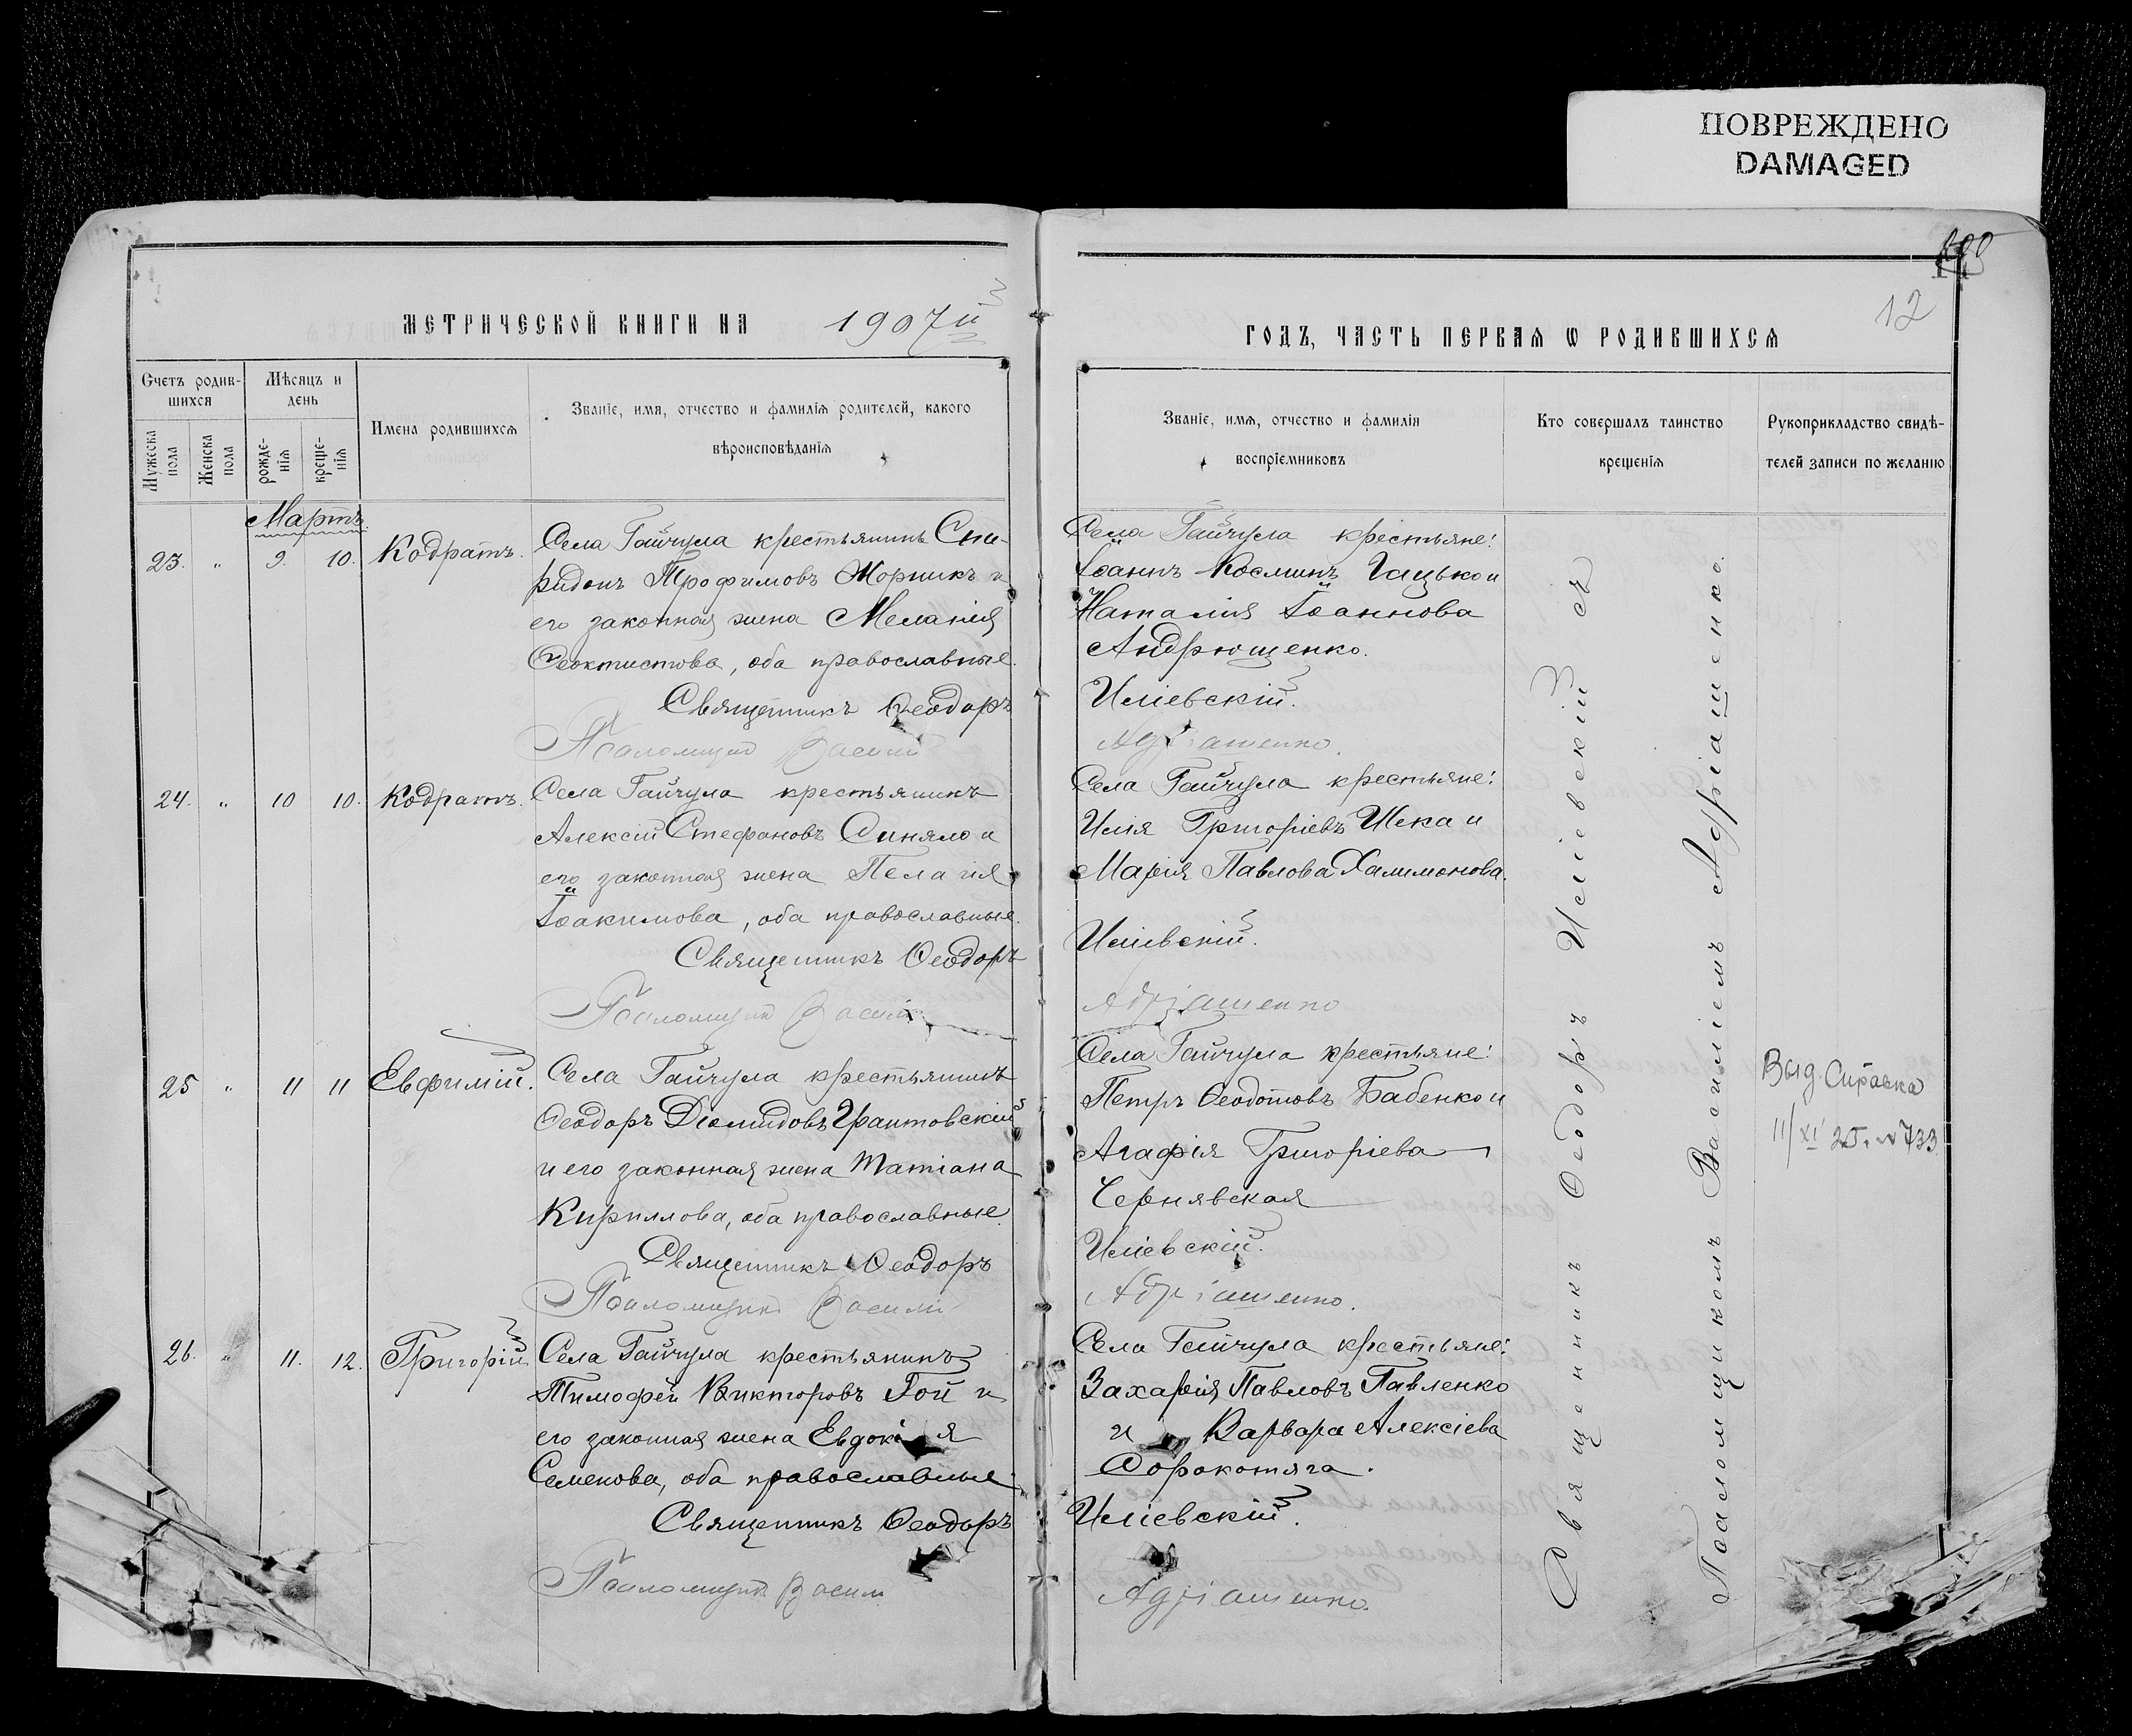 ПОВРЕЖДЕНО
DAMAGED
12
МЕТРИЧЕСКОЙ КНИГИ НА 1907й
ГОДЪ, ЧАСТЬ ПЕРВАЯ Ѡ РОДИВШИХСЯ
Счетъ родив-
шихся
Мужеска пола
Женска пола
Мѣсяцъ и
день
рожде-
нія
креще-
нія
Имена родившихся
Званіе, имя, отчество и фамилія родителей, какого
вѣроисповѣданія
Званіе, имя, отчество и фамилія
воспріемниковъ
Кто совершалъ таинство
крещенія
Рукоприкладство свидѣ-
телей записи по желанію
Мартъ.
23. " 9. 10. Кодратъ.
Села Гайчула крестьянинъ Спи-
ридонъ Трофимовъ Жорникъ и
его законная жена Меланія
Ѳеоктистова, оба православные.
Священникъ Ѳеодоръ
Псаломщикъ Василій
Села Гайчула крестьяне:
Іоаннъ Косминъ Гацько и
Наталия Іоаннова
Андрющенко.
Иліевскій.
Адріашенко.
24. " 10 10. Кодратъ.
Села Гайчула крестьянинъ
Алексій Стефановъ Синяло и
его законная жена Пелагія
Іоакимова, оба православные.
Священникъ Ѳеодоръ
Псаломщикъ Василій
Села Гайчула крестьяне:
Илія Григоріевъ Шека и
Марія Павлова Халимонова.
Иліевскій.
Адріашенко
25 " 11 11 Евфимій.
Села Гайчула крестьянинъ
Ѳеодоръ Діомидовъ Грантовскій
и его законная жена Татіана
Кириллова, оба православные.
Священникъ Ѳеодоръ
Псаломщикъ Василій
Села Гайчула крестьяне:
Петръ Ѳеодотовъ Бабенко и
Агафія Григоріева
Чернявская
Иліевскій.
Адріашенко.
Выд. Справка
11/XI 25г. №733
26. " 11. 12. Григорій
Села Гайчула крестьянинъ
Тимофей Викторовъ Гой и
его законная жена Евдокія
Семенова, оба православные.
Священникъ Ѳеодоръ
Псаломщикъ Василій
Села Гайчула крестьяне:
Захарія Павловъ Павленко
и Варвара Алексіева
Сорокотяга.
Иліевскій.
Адріашенко.
Священникъ Ѳеодоръ Иліевскій съ
Псаломщикомъ Василіемъ Адріашенко.